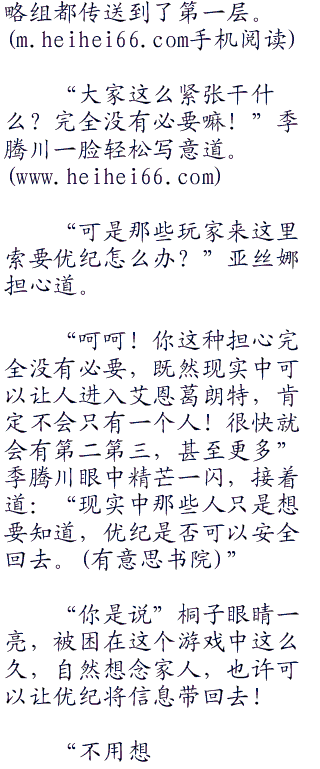 略组都传送到了第一层。
(m.heihei66.com手机阅读)
“大家这么紧张干什
么？完全没有必要嘛！”季
腾川一脸轻松写意道。
(www.heihei66.com)
“可是那些玩家来这里
索要优纪怎么办？”亚丝娜
担心道。
“呵呵！你这种担心完
全没有必要，既然现实中可
以让人进入艾恩葛朗特，肯
定不会只有一个人！很快就
会有第二第三，甚至更多”
季腾川眼中精芒一闪，接着
道：“现实中那些人只是想
要知道，优纪是否可以安全
回去。(有意思书院)”
“你是说”桐子眼睛一
亮，被困在这个游戏中这么
久，自然想念家人，也许可
以让优纪将信息带回去！
“不用想